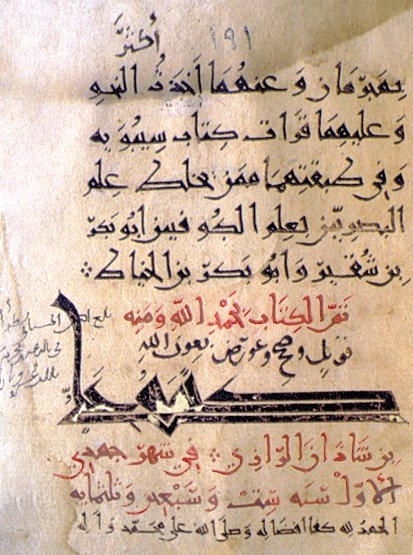 ١٩١
بمبرمان وعنهما أخذت النحو
وعليهما قرأت كتاب سيبويه
وفي طبقتهما ممن خلط علم
البصريين بعلم الكوفيين ابو بكر
بن شقير وابو بكر بن الخياط
نجز الكتاب بحمد الله ومنه
قوبل وصح وعورض بعون الله
كتبه علي
بن شاذان الرازي في شهر جمدي
الأول سنه ست وسبعين وثلثمايه
الحمد لله كفا افضاله وصلى الله على محمد وآله
بلغ